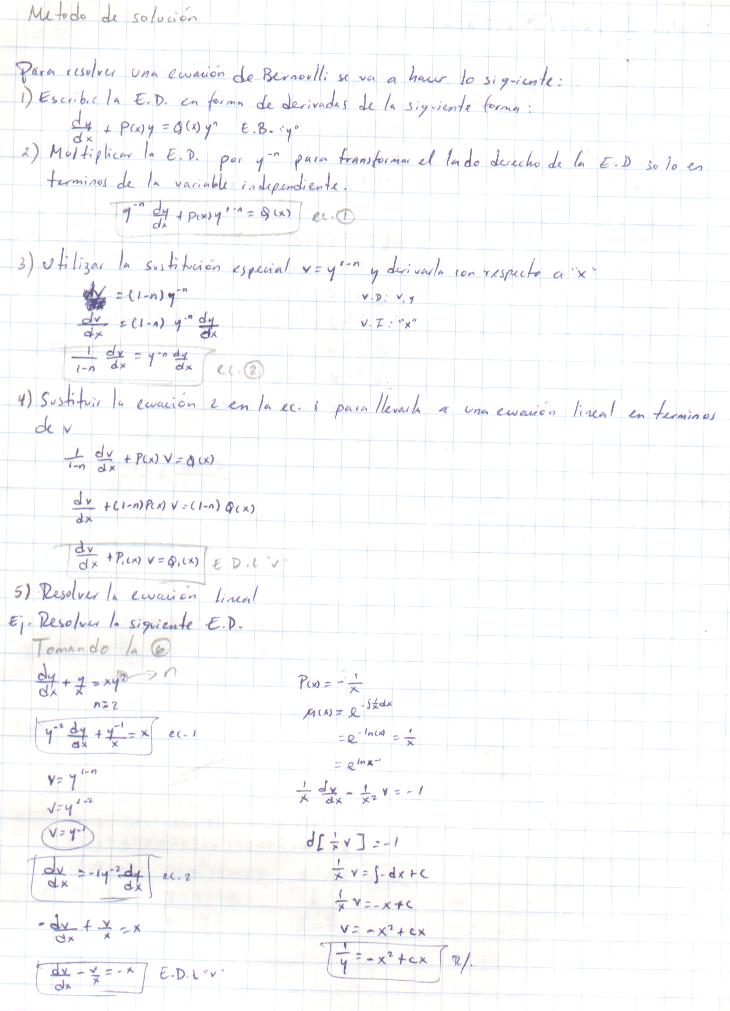 Metodo de solución
Para resolver una ecuación de Bernoulli se va a hacer lo siguiente:
1) Escribir la E.D. en forma de derivadas de la siguiente forma:
dy/dx + P(x)y = Q(x)yⁿ E.B. "y"
2) Multiplicar la E.D. por y⁻ⁿ para transformar el lado derecho de la E.D solo en
terminos de la variable independiente.
y⁻ⁿ dy/dx + P(x)y¹⁻ⁿ = Q(x) ec. ①
3) Utilizar la sustitución especial v = y¹⁻ⁿ y derivarla con respecto a "x"
= (1-n) y⁻ⁿ V.D: v, y
dv/dx = (1-n) y⁻ⁿ dy/dx V.I: "x"
1/(1-n) dv/dx = y⁻ⁿ dy/dx ec. ②
4) Sustituir la ecuación 2 en la ec. 1 para llevarla a una ecuación lineal en terminos
de v
1/(1-n) dv/dx + P(x) v = Q(x)
dv/dx + (1-n)P(x) v = (1-n) Q(x)
dv/dx + P₁(x) v = Q₁(x) E.D.L "v"
5) Resolver la ecuación lineal
Ej. Resolver la siguiente E.D.
Tomando la ⑥
dy/dx + y/x = xy² → n
n=2
y⁻² dy/dx + y⁻¹/x = x ec-1
v = y¹⁻ⁿ
v = y¹⁻²
v = y⁻¹
dv/dx = -1y⁻² dy/dx ec-2
-dv/dx + v/x = x
dv/dx - v/x = -x E.D.L "v"
P(x) = -1/x
μ(x) = e^(-∫1/x dx)
= e^(-ln(x)) = 1/x
= e^(ln x⁻¹)
1/x dv/dx - 1/x² v = -1
d[1/x v] = -1
1/x v = ∫-dx + c
1/x v = -x + c
v = -x² + cx
1/y = -x² + cx R/.